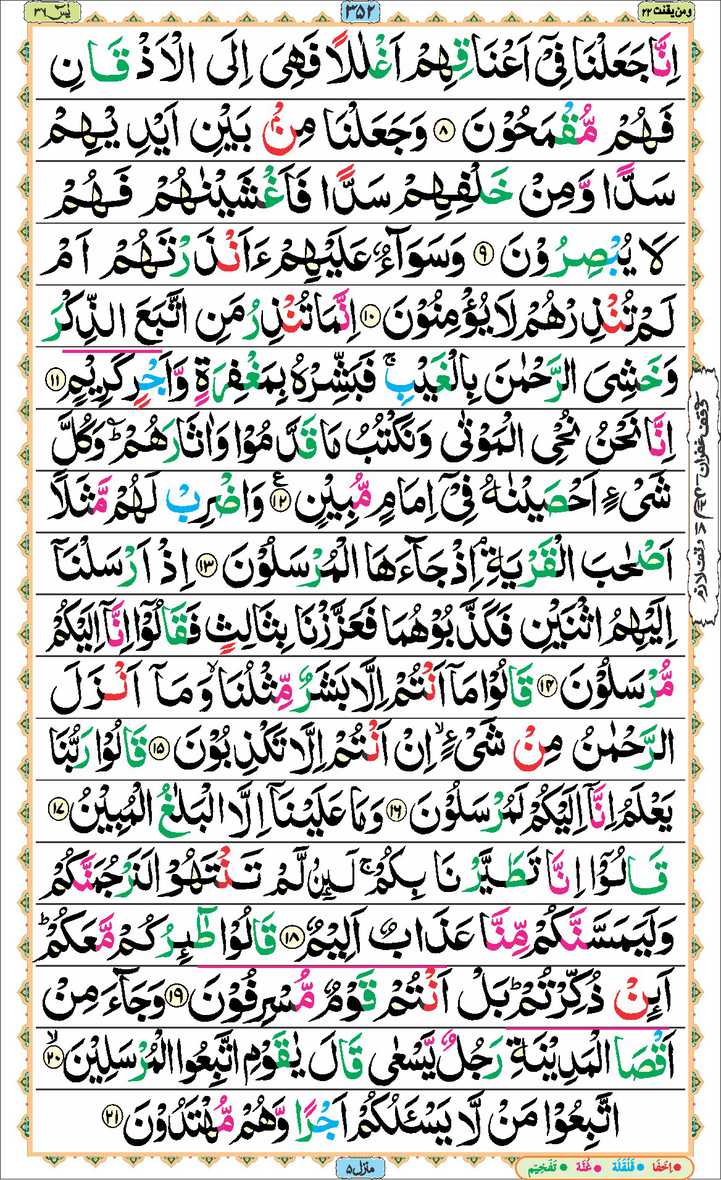 ومن یقنت ۲۲
۳۵۲
یٰسٓ ۳۶
اِنَّا جَعَلْنَا فِیْۤ اَعْنَاقِهِمْ اَغْلٰلًا فَهِیَ اِلَی الْاَذْقَانِ
فَهُمْ مُّقْمَحُوْنَ ۸ وَجَعَلْنَا مِنْۢ بَیْنِ اَیْدِیْهِمْ
سَدًّا وَّمِنْ خَلْفِهِمْ سَدًّا فَاَغْشَیْنٰهُمْ فَهُمْ
لَا یُبْصِرُوْنَ ۹ وَسَوَآءٌ عَلَیْهِمْ ءَاَنْذَرْتَهُمْ اَمْ
لَمْ تُنْذِرْهُمْ لَا یُؤْمِنُوْنَ ۱۰ اِنَّمَا تُنْذِرُ مَنِ اتَّبَعَ الذِّكْرَ
وَخَشِیَ الرَّحْمٰنَ بِالْغَیْبِ ۚ فَبَشِّرْهُ بِمَغْفِرَةٍ وَّاَجْرٍ كَرِیْمٍ ۱۱
اِنَّا نَحْنُ نُحْیِ الْمَوْتٰی وَنَكْتُبُ مَا قَدَّمُوْا وَاٰثَارَهُمْ ؕ وَكُلَّ
شَیْءٍ اَحْصَیْنٰهُ فِیْۤ اِمَامٍ مُّبِیْنٍ ۱۲ ع وَاضْرِبْ لَهُمْ مَّثَلًا
اَصْحٰبَ الْقَرْیَةِ ۘ اِذْ جَآءَهَا الْمُرْسَلُوْنَ ۱۳ اِذْ اَرْسَلْنَاۤ
اِلَیْهِمُ اثْنَیْنِ فَكَذَّبُوْهُمَا فَعَزَّزْنَا بِثَالِثٍ فَقَالُوْۤا اِنَّاۤ اِلَیْكُمْ
مُّرْسَلُوْنَ ۱۴ قَالُوْا مَاۤ اَنْتُمْ اِلَّا بَشَرٌ مِّثْلُنَا ۙ وَمَاۤ اَنْزَلَ
الرَّحْمٰنُ مِنْ شَیْءٍ ۙ اِنْ اَنْتُمْ اِلَّا تَكْذِبُوْنَ ۱۵ قَالُوْا رَبُّنَا
یَعْلَمُ اِنَّاۤ اِلَیْكُمْ لَمُرْسَلُوْنَ ۱۶ وَمَا عَلَیْنَاۤ اِلَّا الْبَلٰغُ الْمُبِیْنُ ۱۷
قَالُوْۤا اِنَّا تَطَیَّرْنَا بِكُمْ ۚ لَىِٕنْ لَّمْ تَنْتَهُوْا لَنَرْجُمَنَّكُمْ
وَلَیَمَسَّنَّكُمْ مِّنَّا عَذَابٌ اَلِیْمٌ ۱۸ قَالُوْا طَآىِٕرُكُمْ مَّعَكُمْ ؕ
اَىِٕنْ ذُكِّرْتُمْ ؕ بَلْ اَنْتُمْ قَوْمٌ مُّسْرِفُوْنَ ۱۹ وَجَآءَ مِنْ
اَقْصَا الْمَدِیْنَةِ رَجُلٌ یَّسْعٰی قَالَ یٰقَوْمِ اتَّبِعُوا الْمُرْسَلِیْنَ ۙ ۲۰
اتَّبِعُوْا مَنْ لَّا یَسْـَٔلُكُمْ اَجْرًا وَّهُمْ مُّهْتَدُوْنَ ۲۱
وقف غفران
وقف لازم
منزل ۵
اِخفَا قَلْقَلَة غُنَّة تَفْخِیْم